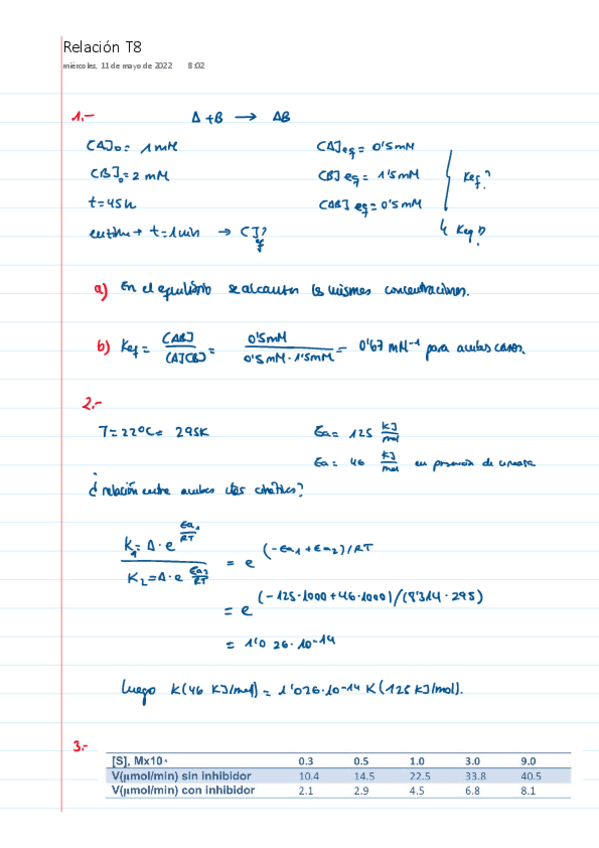 Relación T8
miércoles, 11 de mayo de 2022 8:02
1.- A + B → AB
[A]o = 1 mM [A]eq = 0'5 mM
[B]o = 2 mM [B]eq = 1'5 mM Keq?
t = 45h [AB]eq = 0'5 mM
t = 1 min → [ ]f? Keq?
a) En el equilibrio se alcanzan las mismas concentraciones.
b) Keq = [AB] / [A][B] = 0'5mM / 0'5mM · 1'5mM = 0'67 mM-1 para ambos casos.
2.-
T = 22ºC = 295K Ea = 125 kJ/mol
Ea = 46 kJ/mol en presencia de
¿relación entre ambas ctes cinéticas?
K1 = A · e Ea1/RT / K2 = A · e Ea2/RT = e (-Ea1 + Ea2)/RT
= e (-125·1000 + 46·1000)/(8'314 · 295)
= 1'026·10-14
luego K(46 KJ/mol) = 1'026·10-14 K(125 kJ/mol).
3.-
[S], Mx10 0.3 0.5 1.0 3.0 9.0
V(µmol/min) sin inhibidor 10.4 14.5 22.5 33.8 40.5
V(µmol/min) con inhibidor 2.1 2.9 4.5 6.8 8.1